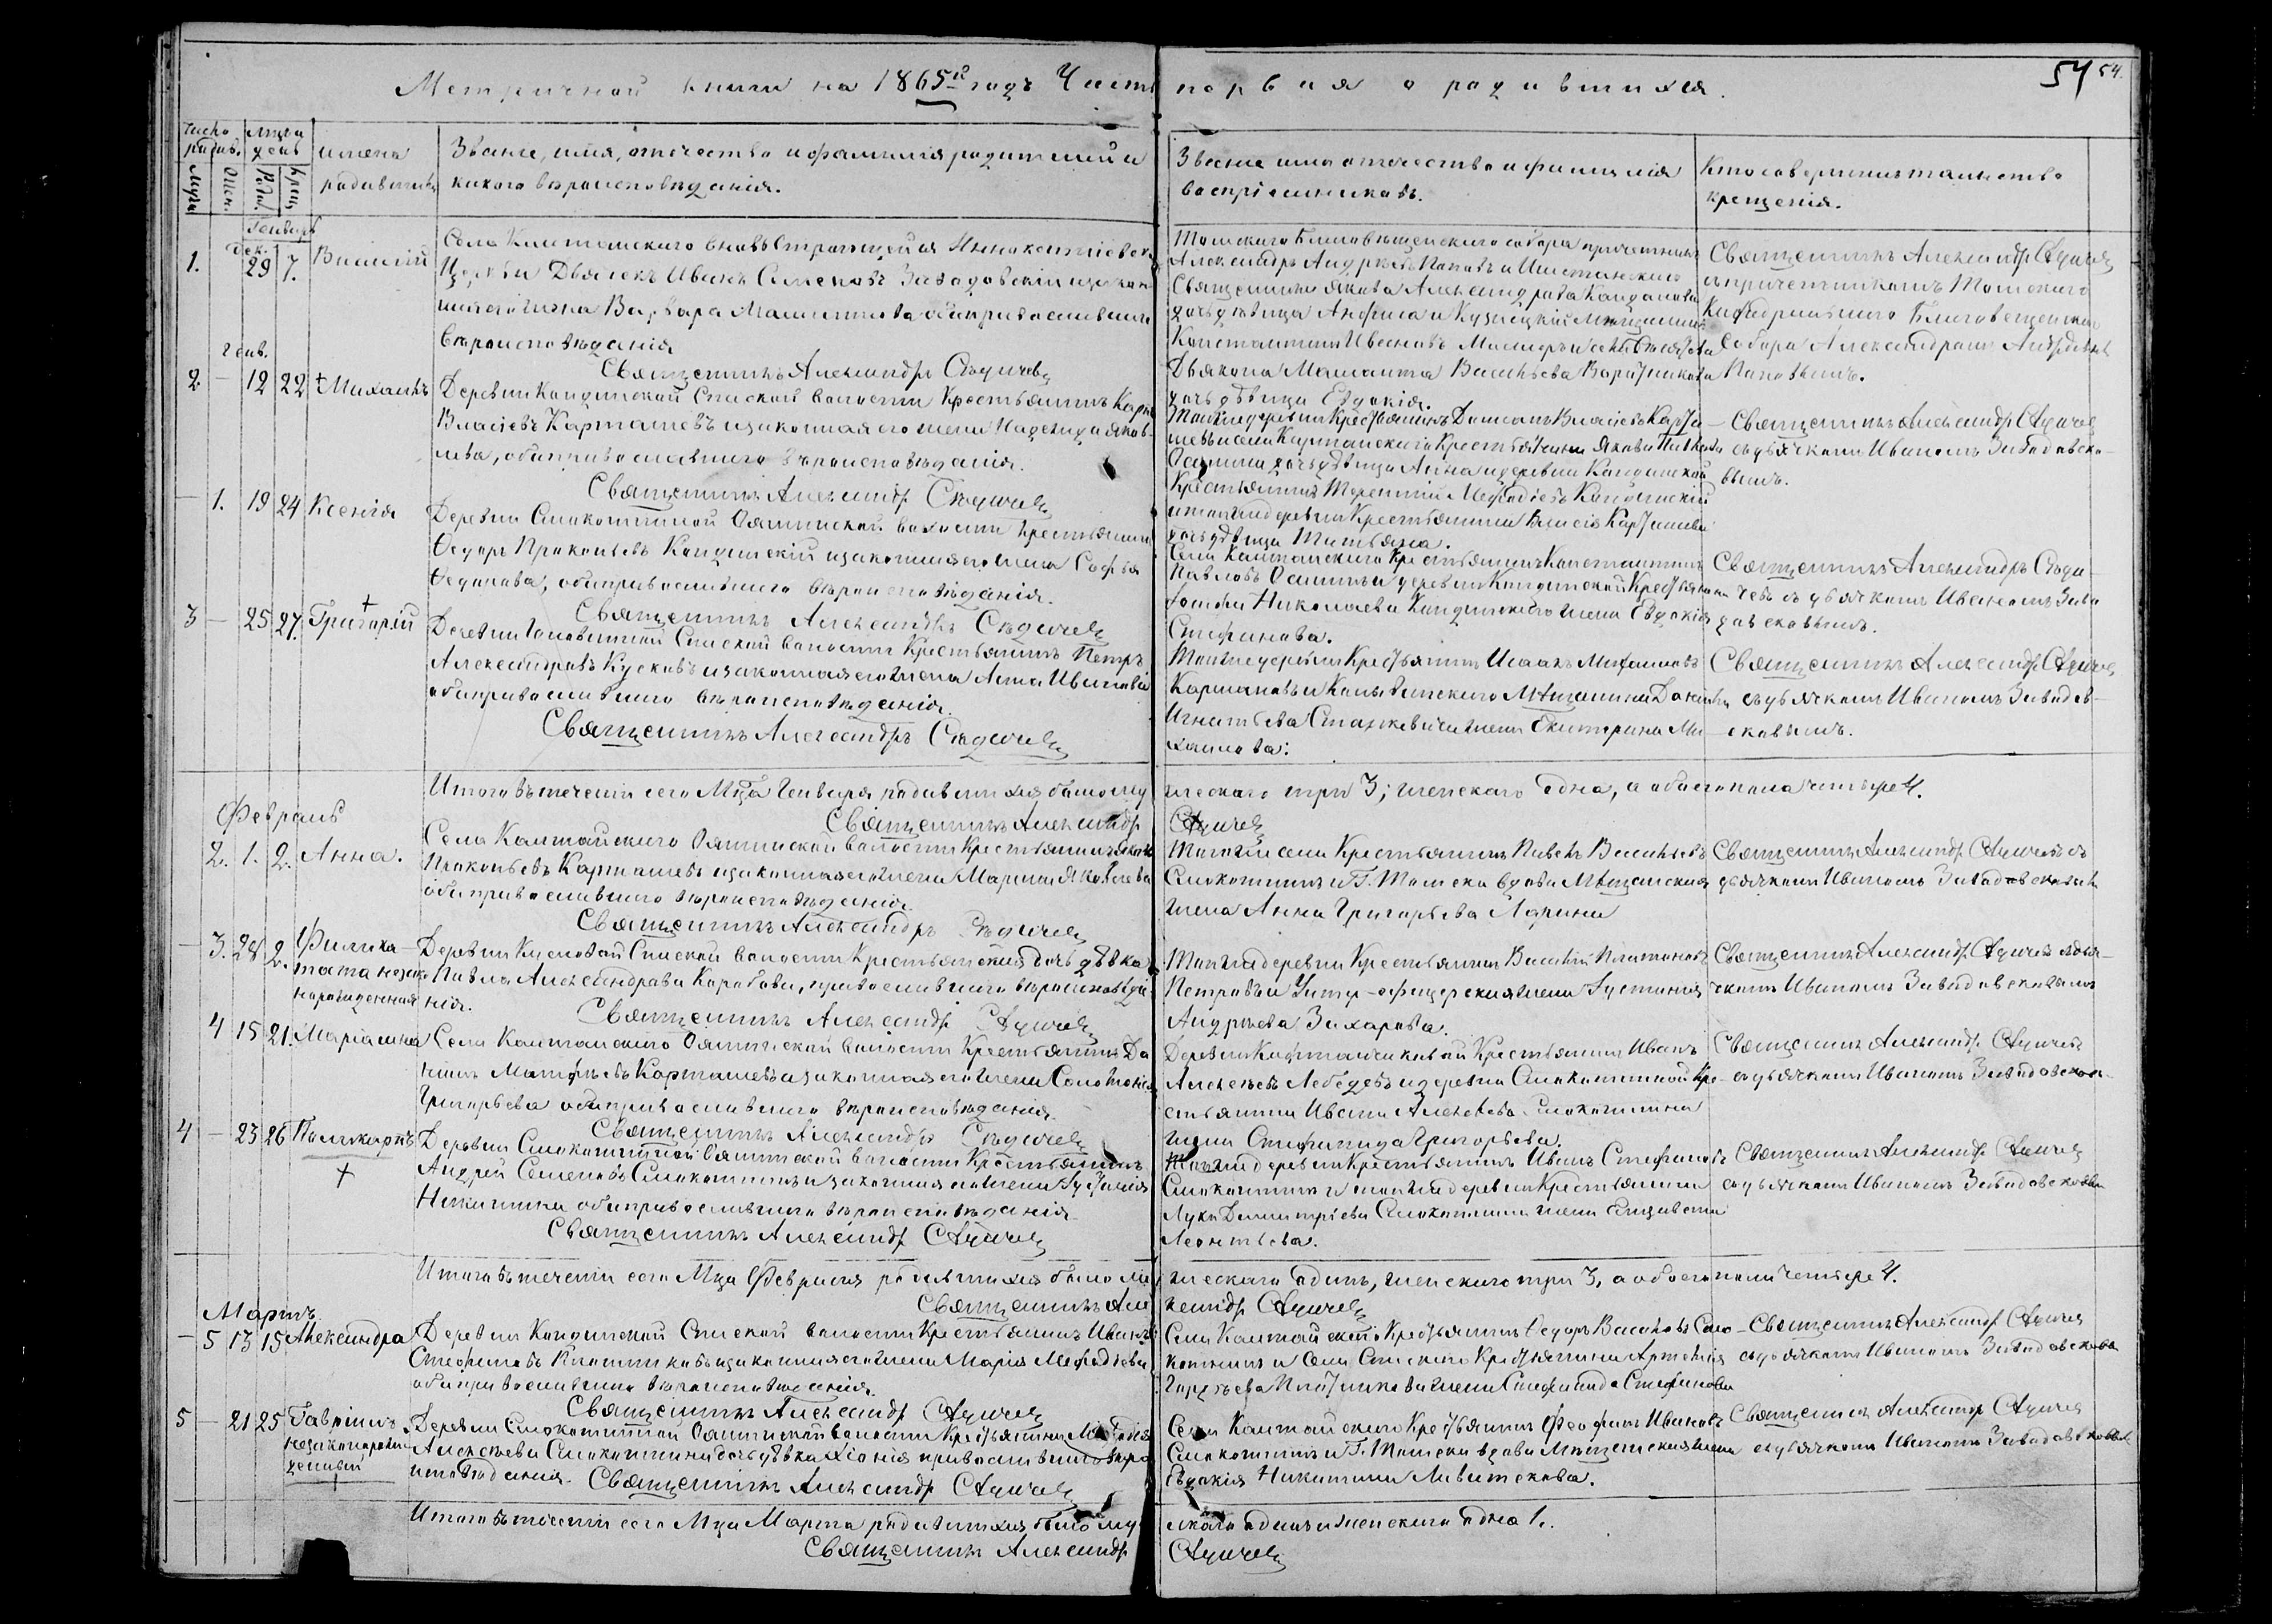 Метричной книги на 1865й годъ Часть первая о родившихся.
54 54.
Число родив.
Мужи
Жен.
Мѣсяцъ и день
Рожд.
Крещ.
имена родивших
Званіе, имя, отечество и фамилія родителей и
какого вѣроисповѣданія.
Званіе имя отечество и фамилія
воспріемниковъ.
Кто совершилъ таинство
крещенія.
Генварь
1.
Дек.
29
7.
Василій
Села Калтайскаго вновь строющейся Иннокентіевск.
Церкви Дьячекъ Иванъ Заводовскій и закон
ная его жена Варвара оба православнаго
вѣроисповѣданія
Священникъ Александръ Сѣдичевъ
Томскаго Благовѣщенскаго собора причетникъ
Александръ Андреевъ Поповъ и
Священника Якова Александрова
дочь дѣвица Анфиса и Кузнецкій Мѣщанинъ
Константинъ Ивановъ
Дьякона Васильева
дочь дѣвица Евдокія.
Священникъ Александръ Сѣдичевъ
съ причетникомъ Томскаго
Кафедральнаго Благовещенскаго
Собора Александромъ Андреевымъ
Поповымъ.
Генв.
2
—
12
22
+ Михаилъ
Деревни Кандинской Спаской волости Крестьянинъ Карпъ
Власіевъ Карташевъ и законная его жена Надежда Яков-
лева, оба православнаго вѣроисповѣданія.
Священникъ Александръ Сѣдичевъ
Той же деревни Крестьянинъ Власіевъ Карта-
шевъ и села Калтайскаго Крестьянина Якова
Осипина дочь дѣвица Анна и деревни Кандинской
Крестьянинъ Терентій Мефодіевъ Кандинскій
и той же деревни Крестьянина Власія Карташева
дочь дѣвица Татьяна.
Священникъ Александръ Сѣдичевъ
съ дьячкомъ Иваномъ Заводовско-
вымъ.
—
1.
19
24
Ксенія
Деревни Смокотиной Ояшинской волости Крестьянинъ
Ѳедоръ Прокопьевъ Кандинскій и законная его жена Софья
Федорова, оба православнаго вѣроисповѣданія.
Священникъ Александръ Сѣдичевъ
Села Калтайскаго Крестьянинъ Константинъ
Павловъ Осипинъ и деревни Кандинской Крестьянина
Николаева Кандинскаго жена Евдокія
Стефанова.
Священникъ Александръ Сѣди-
чевъ съ дьячкомъ Иваномъ Заво
довсковымъ.
3
—
25
27.
+
Григорій
Деревни Головиной Спаской волости Крестьянинъ Петръ
Александровъ Кусковъ и законная его жена Анна Иванова
оба православнаго вѣроисповѣданія.
Священникъ Александръ Сѣдичевъ
Той же деревни Крестьянинъ Исаакъ Михайловъ
и Колыванскаго Мѣщанина
Игнатьева Стажкевича жена Екатерина Ми-
хаилова:
Священникъ Александръ Сѣдичевъ
съ дьячкомъ Иваномъ Заводов-
сковымъ.
Итого въ теченіи сего Мца Генваря родившихся было му
жескаго три 3; женскаго одна, а обоего пола четыре 4.
Священникъ Александръ
Сѣдичевъ
Февраль
2.
1.
2.
Анна.
Села Калтайскаго Ояшинской волости Крестьянинъ
Прокопьевъ Карташевъ и законная его жена Марина Яковлева
оба православнаго вѣроисповѣданія
Священникъ Александръ Сѣдичевъ
Того же села Крестьянинъ Павелъ Васильевъ
Смокотинъ и Г. Томска вдова Мѣщанская
жена Анна Григорьева Ларина
Священникъ Александръ Сѣдичевъ съ
дьячкомъ Иваномъ Заводовсковымъ
—
3.
28
2.
Филиха-
тата незако
нарожденная
Деревни Кисловой Спаской волости Крестьянская дочь дѣвка
Павла Александрова Коробова, православнаго вѣроисповѣда-
нія.
Священникъ Александръ Сѣдичевъ
Той же деревни Крестьянинъ Василій Платоновъ
Петровъ и Унтер-офицерская жена Устинія
Андреева Захарова.
Священникъ Александръ Сѣдичевъ съ дья-
чкомъ Иваномъ Заводовсковымъ
4
15
21.
Маріамна
Села Калтайскаго Ояшинской волости Крестьянинъ Да
нилъ Матфѣевъ Карташевъ и законная его жена Соломонія
Григорьева оба православнаго вѣроисповѣданія.
Священникъ Александръ Сѣдичевъ
Деревни Кафтанчиковой Крестьянинъ Иванъ
Алексѣевъ Лебедевъ и деревни Смокотиной Кре-
стьянина Ивана Алексѣева Смокотинина
жена Стефанида Григорьева.
Священникъ Александръ Сѣдичевъ
съ дьячкомъ Иваномъ Заводовсков-
4
—
23
26
Поликарпъ
+
Деревни Смокотиной Ояшинской волости Крестьянинъ
Андрей Семеновъ Смокотинъ и законная его жена
Никитина оба православнаго вѣроисповѣданія
Священникъ Александръ Сѣдичевъ
Той же деревни Крестьянинъ Иванъ Стефановъ
Смокотинъ и той же деревни Крестьянина
Луки Димитріева Смокотина жена Елизавета
Леонтьева.
Священникъ Александръ Сѣдичевъ
съ дьячкомъ Иваномъ Заводовсковым
Итого въ теченіи сего Мца Февраля родившихся было му
жескаго одинъ, женскаго три 3, а обоего пола четыре 4.
Священникъ Але
ксандръ Сѣдичевъ
Мартъ
—
5
13
15
Александра
Деревни Кандинской Спаской волости Крестьянинъ Иванъ
Стефановъ Плотниковъ и законная его жена Марія Мефодіева
оба православнаго вѣроисповѣданія.
Священникъ Александръ Сѣдичевъ
Села Калтайскаго Крестьянинъ Ѳедоръ Васильевъ Смо-
котинъ и Села Спаскаго Крестьянина Артемія
Плотникова жена Стефанида Стефанова
Священникъ Александръ Сѣдичевъ
съ дьячкомъ Иваномъ Заводовсковы
5
—
21
25
Гавріилъ
незаконорож
денный
+
Деревни Смокотиной Ояшинской волости Крестьянина
Алексѣева Смокотинина дочь дѣвка Хіонія православнаго вѣро
исповѣданія. Священникъ Александръ Сѣдичевъ
Села Калтайскаго Крестьянинъ Феофанъ Ивановъ
Смокотинъ и Г. Томска вдова Мѣщанская жена
Евдокія Никитина
Священникъ Александръ Сѣдичевъ
съ дьячкомъ Иваномъ Заводовсковым
Итого въ теченіи сего Мца Марта родившихся было му
жскаго одинъ и женскаго одна 1.
Священникъ Александръ
Сѣдичевъ